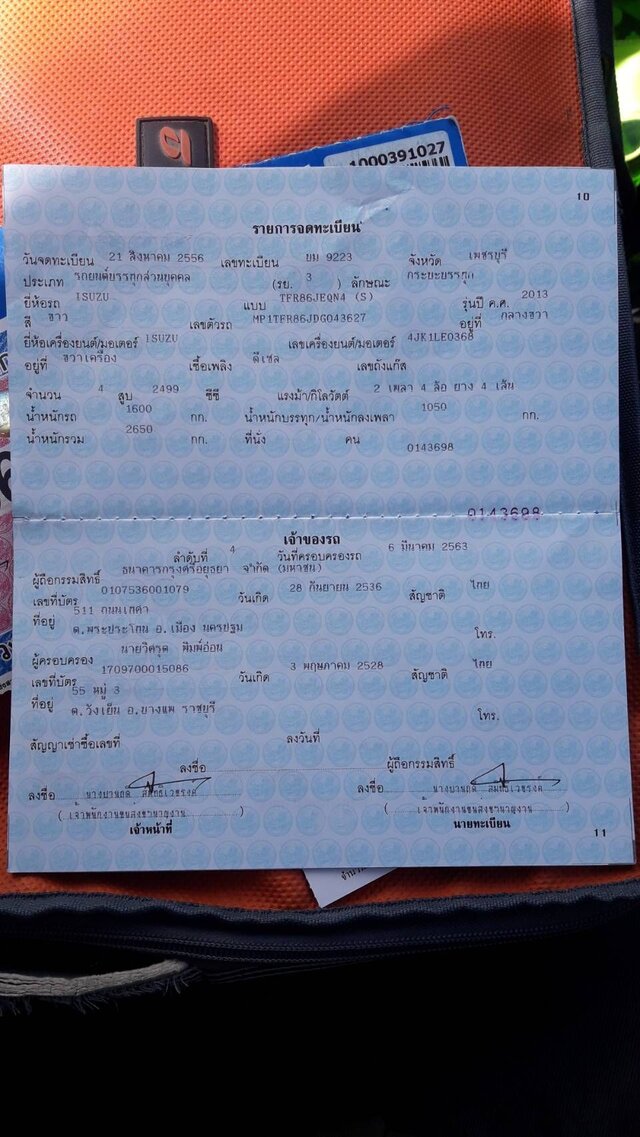 1000391027
10
รายการจดทะเบียน
วันจดทะเบียน 21 สิงหาคม 2556 เลขทะเบียน ยม 9223 จังหวัด เพชรบุรี
ประเภท รถยนต์บรรทุกส่วนบุคคล (รย. 3 ) ลักษณะ กระบะบรรทุก
ยี่ห้อรถ ISUZU แบบ TFR86JEQN4 (S) รุ่นปี ค.ศ. 2013
สี ขาว เลขตัวรถ MP1TFR86JDG043627 อยู่ที่ กลางขวา
ยี่ห้อเครื่องยนต์/มอเตอร์ ISUZU เลขเครื่องยนต์/มอเตอร์ 4JK1LE0368
อยู่ที่ ขวาเครื่อง เชื้อเพลิง ดีเซล เลขถังแก๊ส
จำนวน 4 สูบ 2499 ซีซี แรงม้า/กิโลวัตต์ 2 เพลา 4 ล้อ ยาง 4 เส้น
น้ำหนักรถ 1600 กก. น้ำหนักบรรทุก/น้ำหนักลงเพลา 1050 กก.
น้ำหนักรวม 2650 กก. ที่นั่ง คน
0143698
0143698
เจ้าของรถ
ลำดับที่ 4 วันที่ครอบครองรถ 6 มีนาคม 2563
ผู้ถือกรรมสิทธิ์ ธนาคารกรุงศรีอยุธยา จำกัด (มหาชน)
เลขที่บัตร 0107536001079 วันเกิด 28 กันยายน 2536 สัญชาติ ไทย
ที่อยู่ 511 ถนนเทศา
ต.พระประโทน อ.เมือง นครปฐม โทร.
ผู้ครอบครอง นายวิศรุต พิมพ์อ่อน
เลขที่บัตร 1709700015086 วันเกิด 3 พฤษภาคม 2528 สัญชาติ ไทย
ที่อยู่ 55 หมู่ 3
ต.วังเย็น อ.บางแพ ราชบุรี โทร.
สัญญาเช่าซื้อเลขที่ ลงวันที่
ลงชื่อ ผู้ถือกรรมสิทธิ์
ลงชื่อ ลงชื่อ
( เจ้าพนักงานขนส่งชำนาญงาน ) ( เจ้าพนักงานขนส่งชำนาญงาน )
เจ้าหน้าที่ นายทะเบียน
11